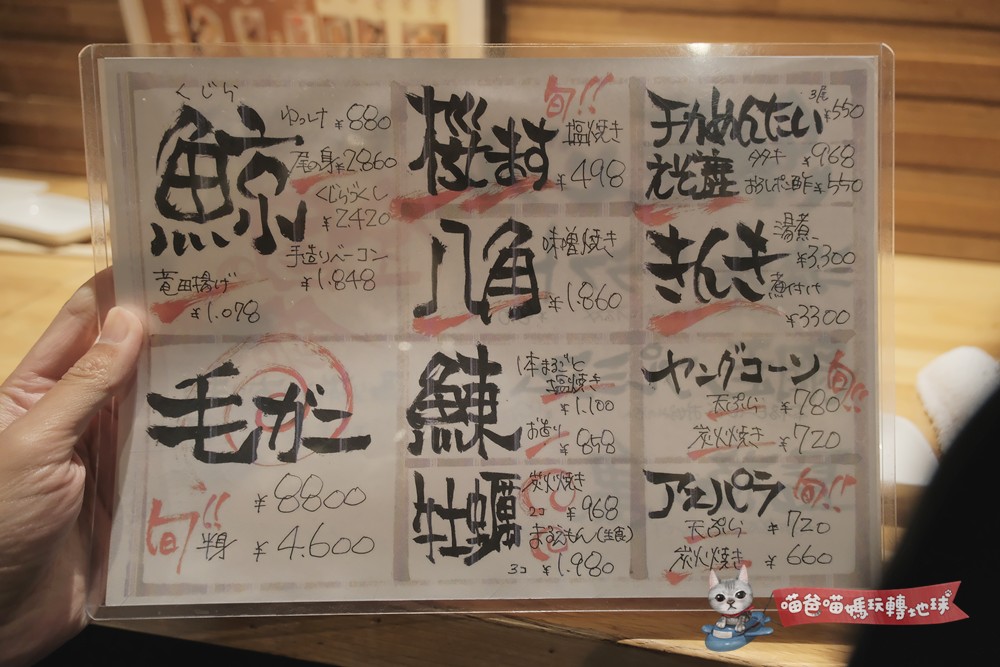 くじら
鯨
ゆっけ ¥880
尾の身 ¥2,860
くじらづくし
¥2,420
手造りベーコン
¥1,848
竜田揚げ
¥1,078
毛ガニ
旬!!
¥8800
半身 ¥4,600
旬!!
塩焼き
¥498
八角
味噌焼き
¥1,860
鰊
1本まるごと
塩焼き
¥1,100
お造り
¥858
牡蠣
炭火焼き
2コ ¥968
まるえもん(生食)
3コ ¥1,980
チカめんたい
3尾 ¥550
えぞ鹿
タタキ ¥968
おろしポン酢 ¥550
きんき
湯煮
¥3,300
煮付け
¥3300
ヤングコーン
旬!!
天ぷら ¥780
炭火焼き ¥720
アスパラ
旬!!
天ぷら ¥720
炭火焼き ¥660
喵爸喵媽玩轉地球